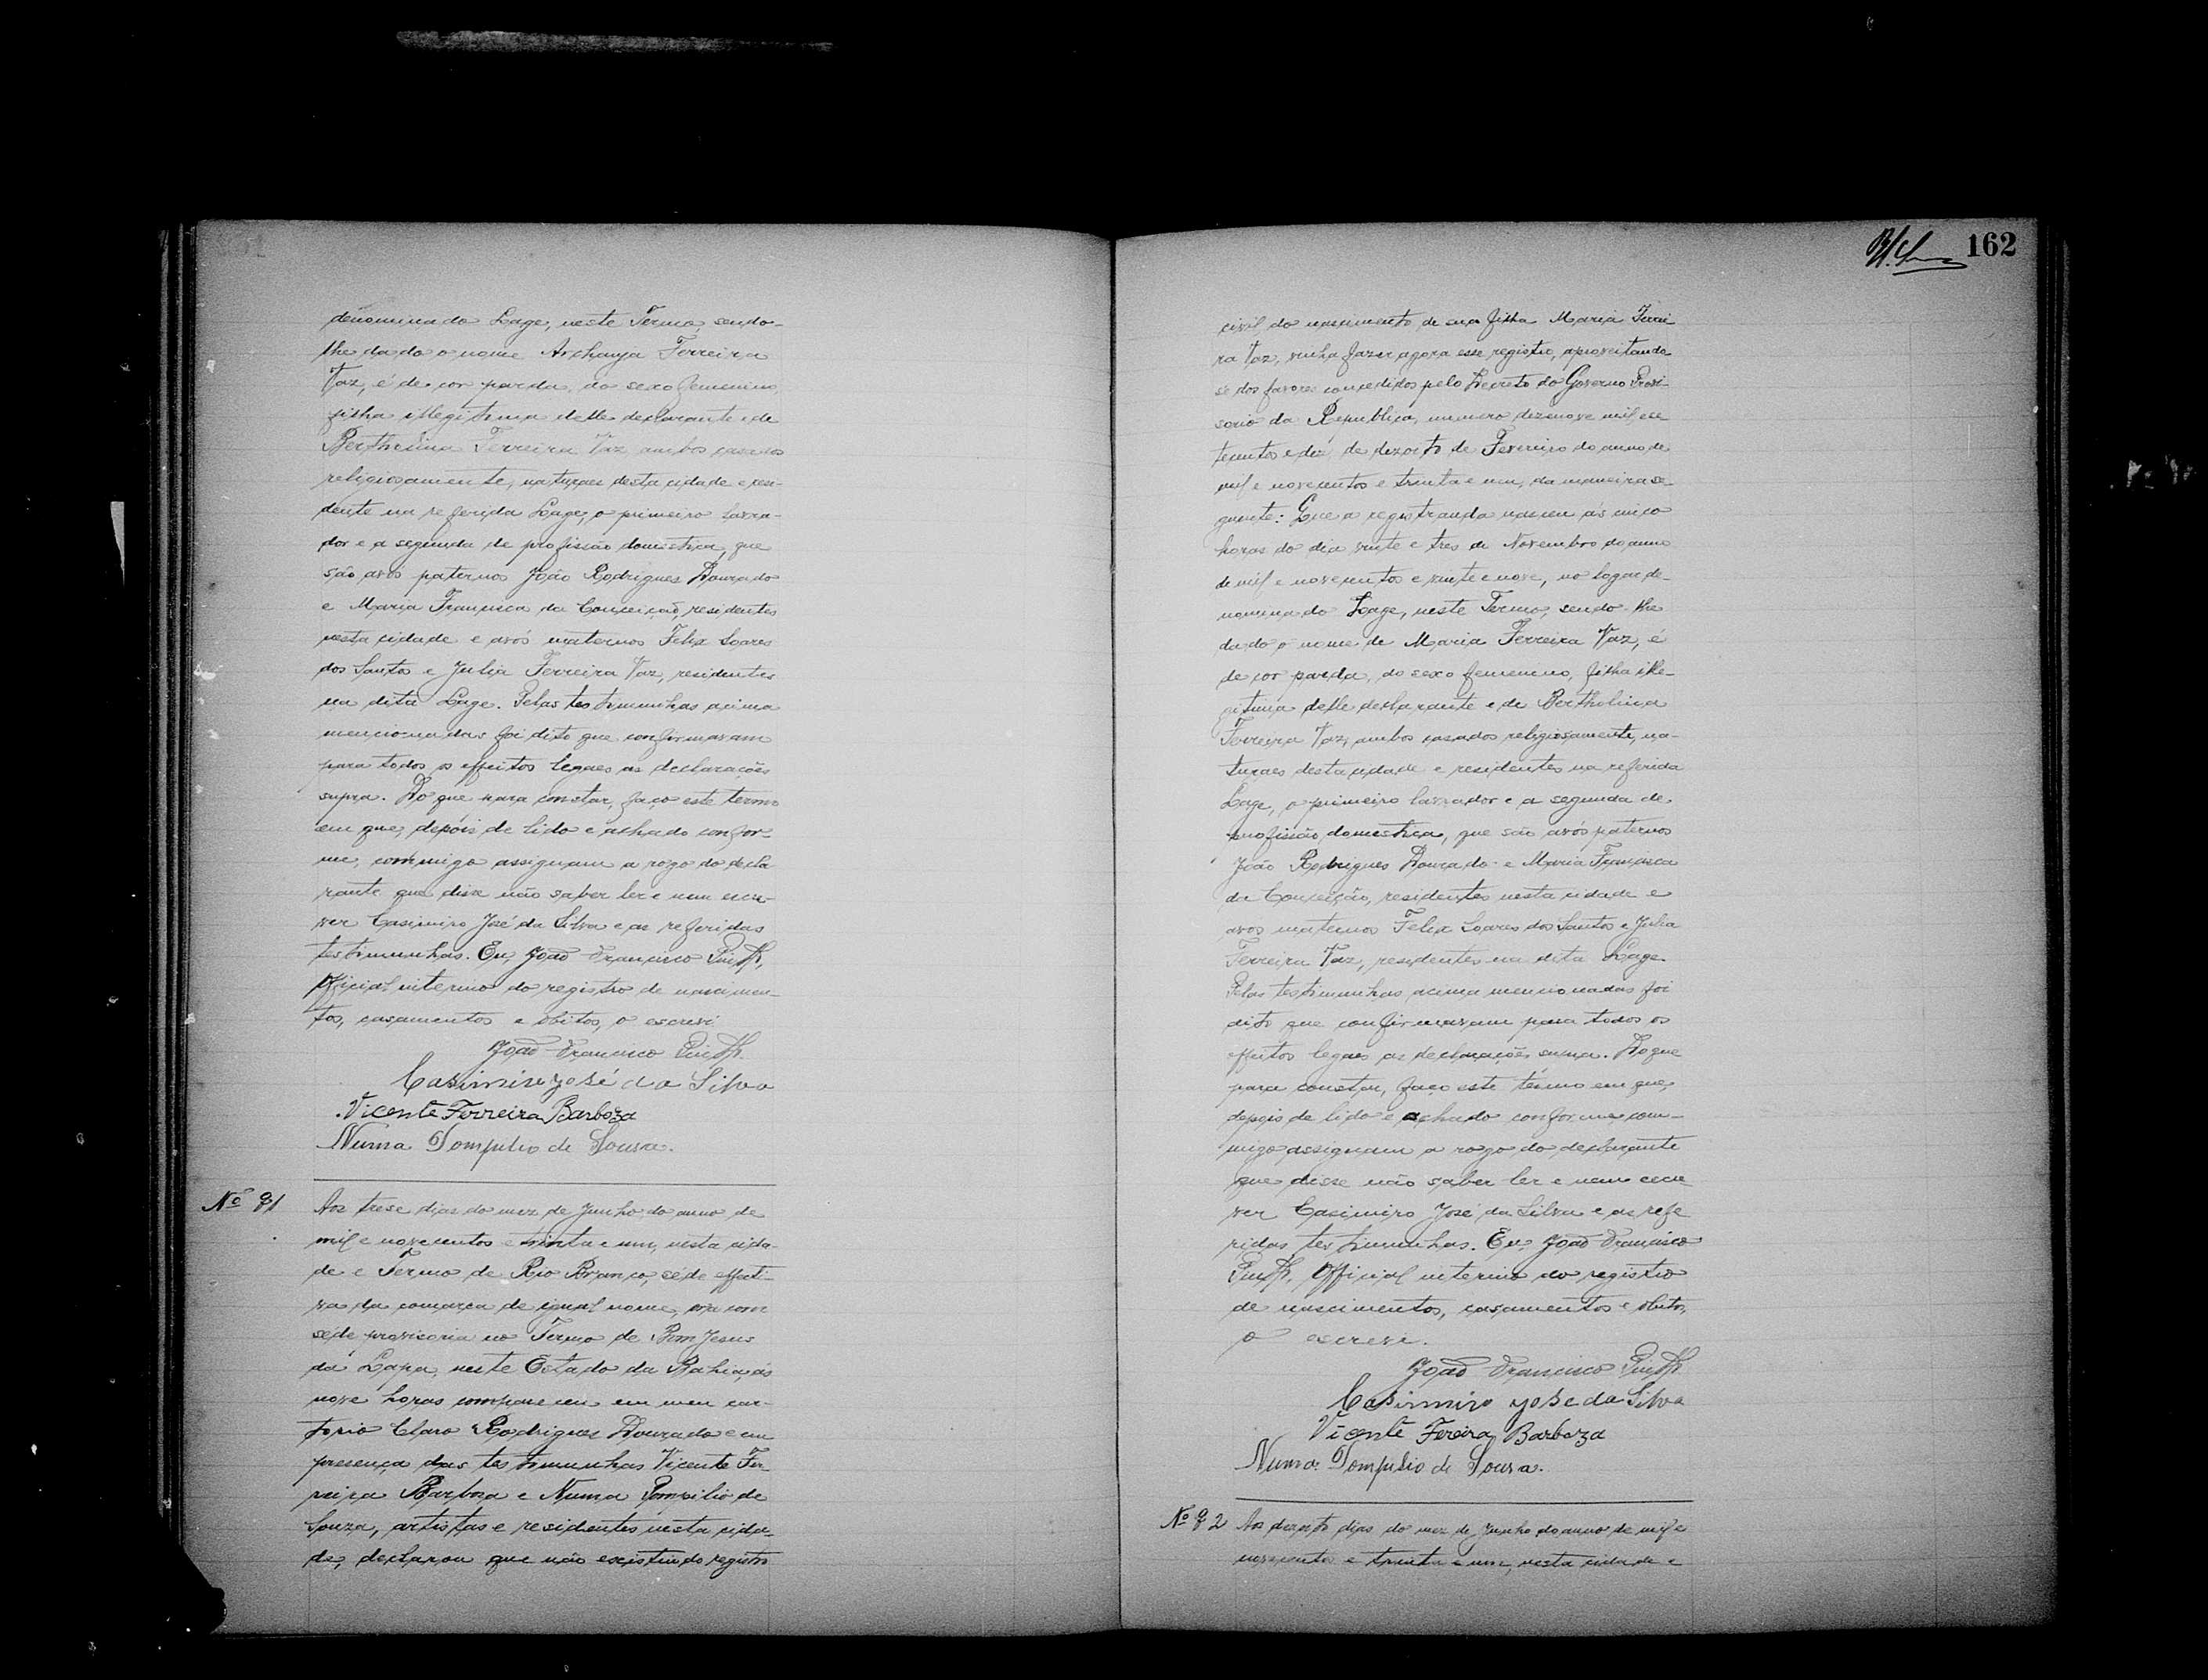 denominado Lage, neste Termo, sendo-
lhe dado o nome Archanja Ferreira
Vaz, é de cor parda, do sexo femenino,
filha illegitima delle declarante e de
Bertholina Ferreira Vaz, ambos casados
religiosamente, naturaes desta cidade e resi-
dente na referida Lage, o primeiro lavra-
dor e a segunda de profissão domestica, que
são avós paternos João Rodrigues Dourado
e Maria Francisca da Conceição, residentes
nesta cidade e avós maternos Felix Soares
dos Santos e Julia Ferreira Vaz, residentes
na dita Lage. Pelas testimunhas acima
mencionadas foi dito que confirmavam
para todos os effeitos legaes as declarações
supra. Do que para constar, faço este termo
em que, depois de lido e achado confor-
me, commigo assignam a rogo do decla-
rante que disse não saber ler e nem escre-
ver Casimiro José da Silva e as referidas
testimunhas. Eu, João Francisco
Official interino do registro de nascimen-
tos, casamentos e obitos, o escrevi
João Francisco
Casimiro José da Silva
Vicente Ferreira Barboza
Numa Pompilio de Sousa.
Nº 81
Aos trese dias do mez de Junho do anno de
mil e novecentos e trinta e um, nesta cida-
de e Termo de Rio Branco, séde effecti-
va da comarca de igual nome, ora com
séde provisoria no Termo de Bom Jesus
da Lapa, neste Estado da Bahia, ás
nove horas compareceu em meu car-
torio Claro Rodrigues Dourado e em
presença das testimunhas Vicente Fer-
reira Barbosa e Numa Pompilio de
Souza, artistas e residentes nesta cida-
de, declarou que não existindo registro
162
civil do nascimento de sua filha Maria Ferrei-
ra Vaz, vinha fazer agora esse registro, aproveitando
se dos favores concedidos pelo Decreto do Governo Provi-
sorio da Republica, numero dezenove mil e se-
tecentos e dez, de dezoito de Fevereiro do anno de
mil e novecentos e trinta e um, da maneira se-
guinte: Que a registranda nasceu as cinco
horas do dia vinte e tres de Novembro do anno
de mil e novecentos e vinte e nove, no logar de-
nominado Lage, neste Termo, sendo-lhe
dado o nome de Maria Ferreira Vaz, é
de cor parda, do sexo femenino, filha ille-
gitima delle declarante e de Bertholina
Ferreira Vaz, ambos casados religiosamente, na-
turaes desta cidade e residentes na referida
Lage, o primeiro lavrador e a segunda de
profissão domestica, que são avós paternos
João Rodrigues Dourado e Maria Francisca
da Conceição, residentes nesta cidade e
avos maternos Felix Soares dos Santos e Julia
Ferreira Vaz, residentes na dita Lage.
Pelas testimunhas acima mencionadas foi
dito que confirmavam para todos os
effeitos legaes as declarações supra. Do que
para constar, faço este termo em que,
depois de lido e achado conforme com-
migo assignam a rogo do declarante
que disse não saber ler e nem escre
ver Casimiro José da Silva e as refe
ridas testimunhas. Eu, João Francisco
Official interino do registro
de nascimentos, casamentos e obitos,
o escrevi.
João Francisco
Casimiro José da Silva
Vicente Fereira Barboza
Numa Pompilio de Sousa.
Nº 82 Aos dezoito dias do mez de Junho do anno de mil e
novecentos e trinta e um, nesta cidade e